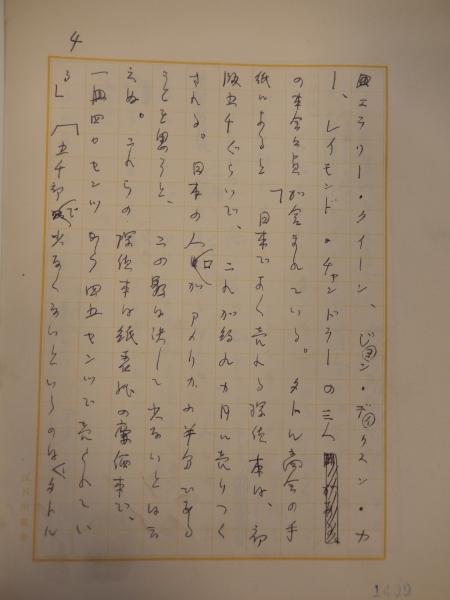 4
エラリー・クイーン、ジョン・ディクスン・カ
ー、レイモンド・チャンドラーの三人
の本会々員が含まれている。タトル商会の手
紙によると「日本でよく売れる探偵本は、初
版五千ぐらいで、これが約九カ月に売りつく
される。日本の人口がアメリカの半分である
ことを思うと、この数は決して少ないとは云
えぬ。これらの探偵本は紙表紙の廉価本で、
一冊四〇センツから四五センツで売られてい
る」「五千部で少なくないというのは、タトル
1409